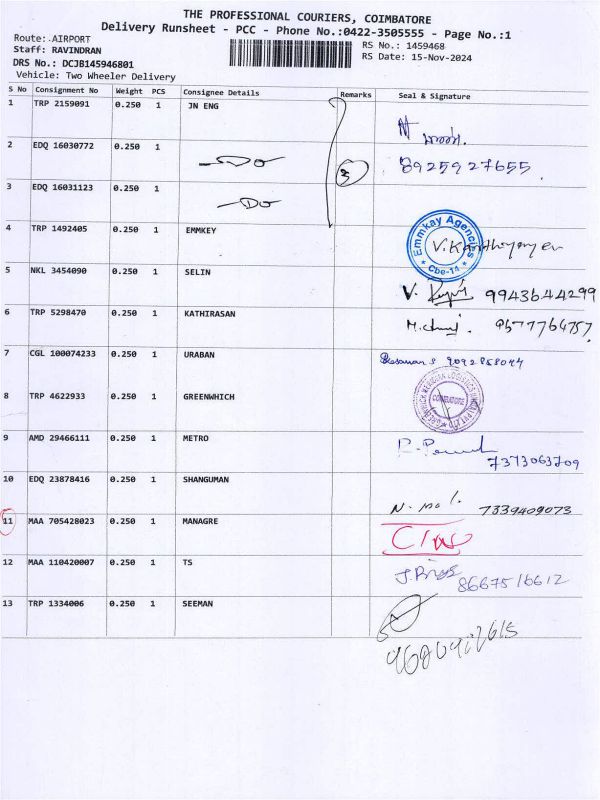 THE PROFESSIONAL COURIERS, COIMBATORE
Delivery Runsheet - PCC - Phone No.:0422-3505555 - Page No.:1
Route: AIRPORT
RS No.: 1459468
Staff: RAVINDRAN
RS Date: 15-Nov-2024
DRS No.: DCJB145946801
Vehicle: Two Wheeler Delivery
S No Consignment No Weight PCS Consignee Details Remarks Seal & Signature
1 TRP 2159091 0.250 1 JN ENG
2 EDQ 16030772 0.250 1 Do 3 8925927655
3 EDQ 16031123 0.250 1 Do
4 TRP 1492405 0.250 1 EMMKEY Emmkay Agencies Cbe-14
5 NKL 3454090 0.250 1 SELIN 9943644299
6 TRP 5298470 0.250 1 KATHIRASAN
7 CGL 100074233 0.250 1 URABAN
8 TRP 4622933 0.250 1 GREENWHICH COIMBATORE
9 AMD 29466111 0.250 1 METRO 7373063709
10 EDQ 23878416 0.250 1 SHANGUMAN 7339409073
11 MAA 705428023 0.250 1 MANAGRE
12 MAA 110420007 0.250 1 TS 8667516612
13 TRP 1334006 0.250 1 SEEMAN